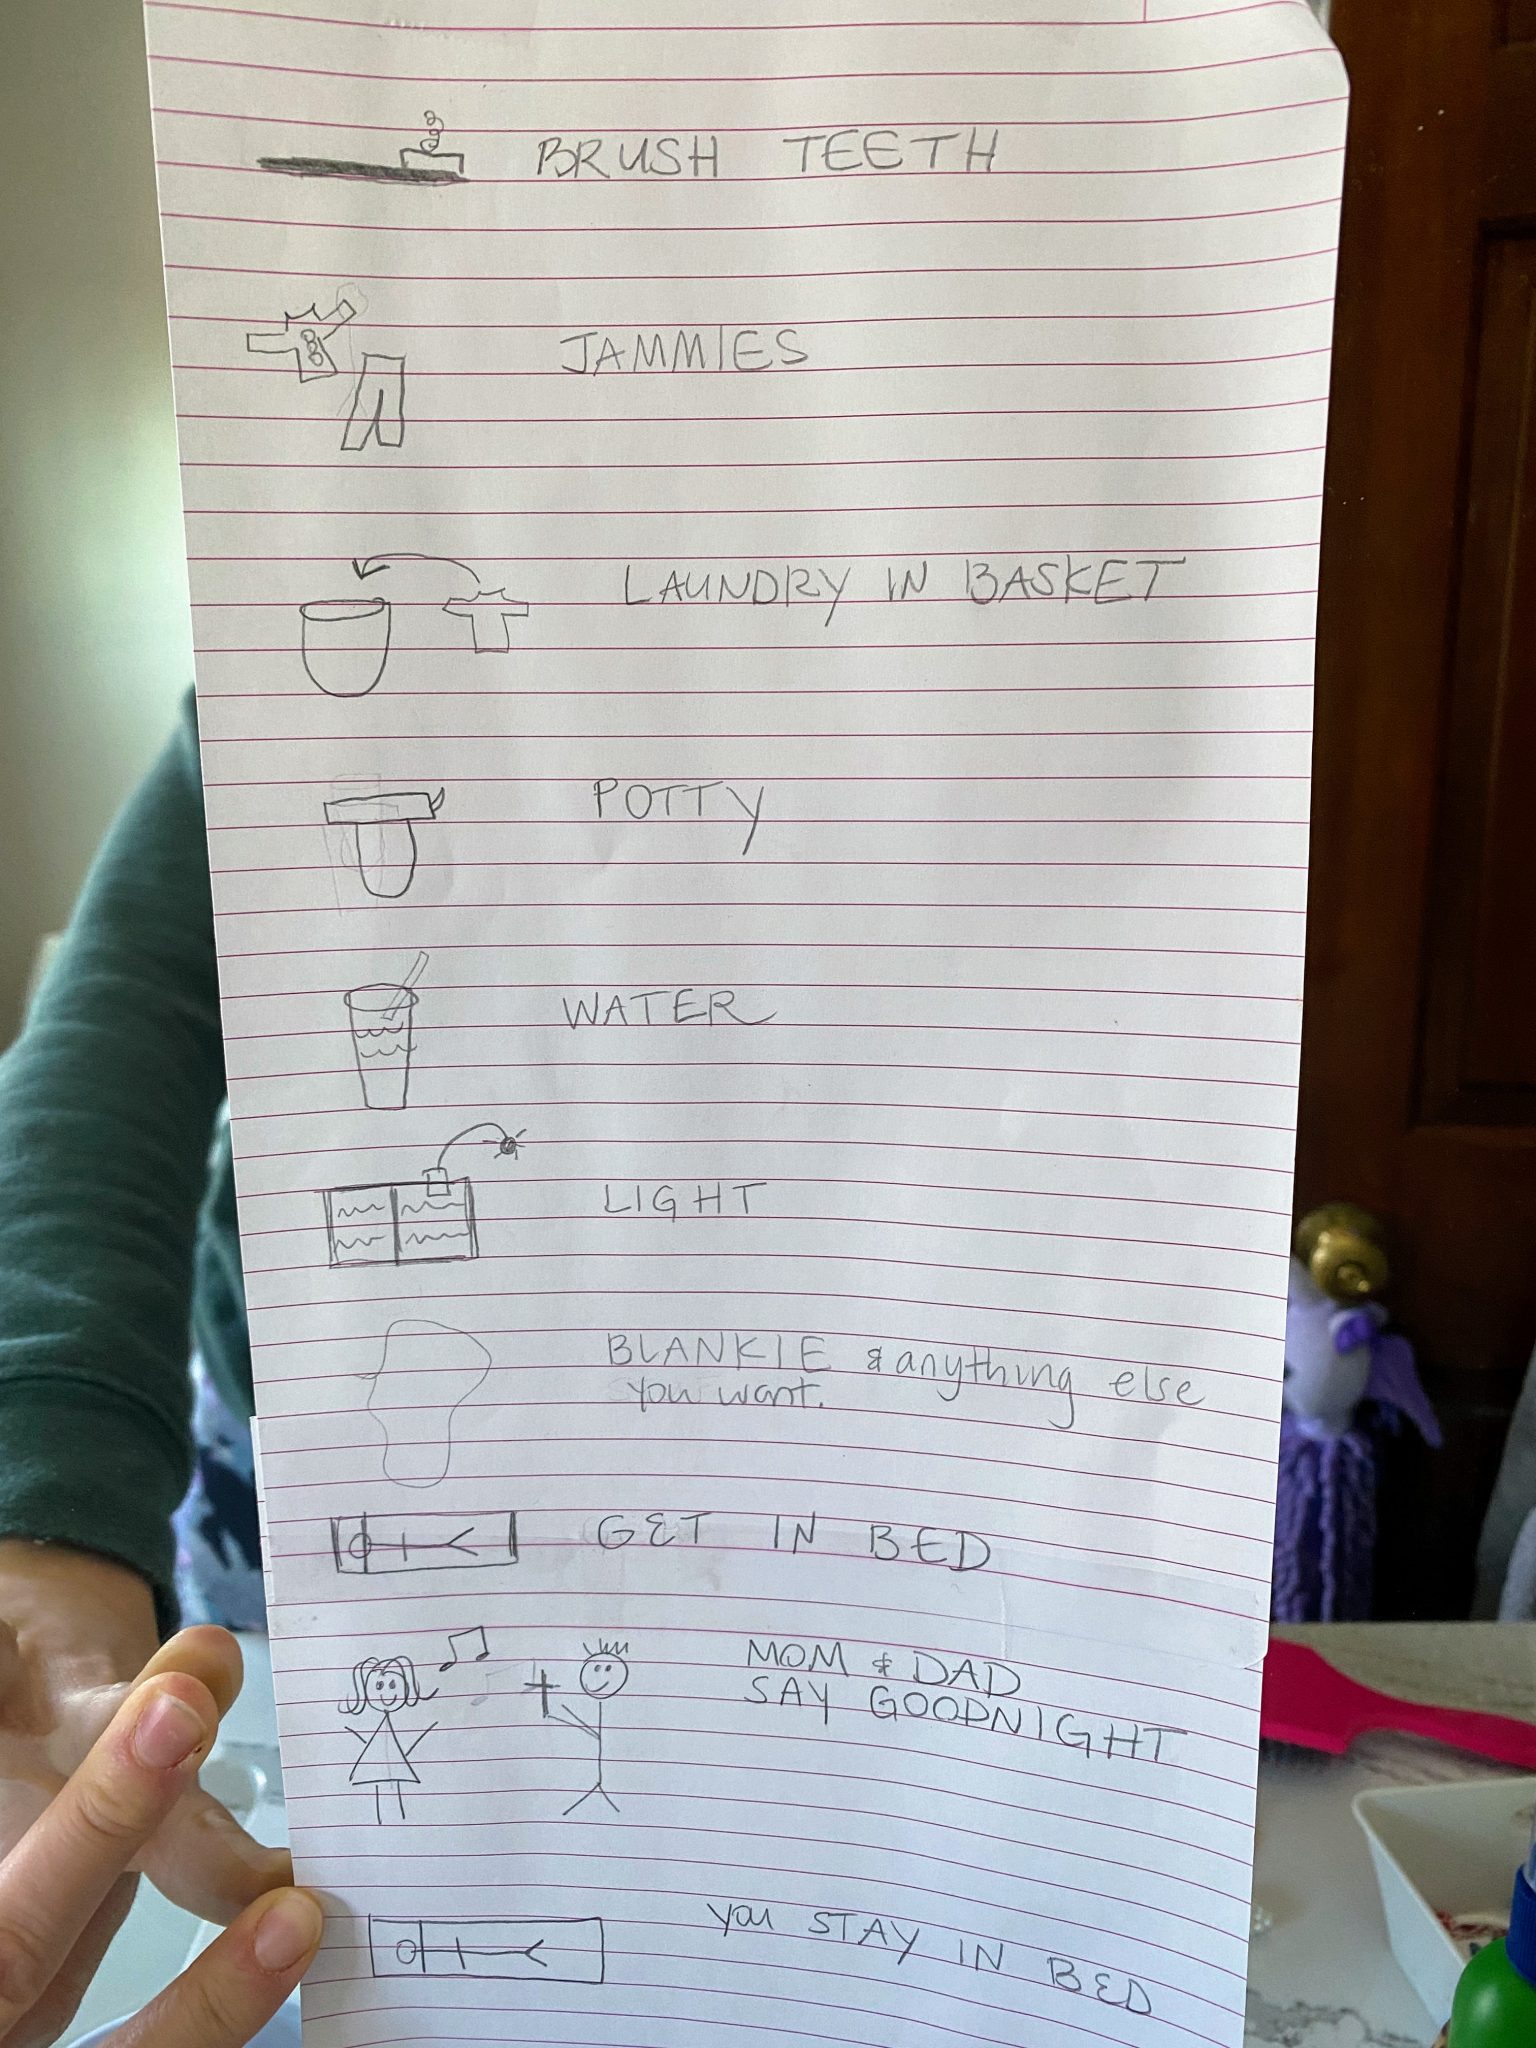 BRUSH TEETH
JAMMIES
LAUNDRY IN BASKET
POTTY
WATER
LIGHT
BLANKIE & anything else
you want.
GET IN BED
MOM & DAD
SAY GOODNIGHT
you STAY IN BED